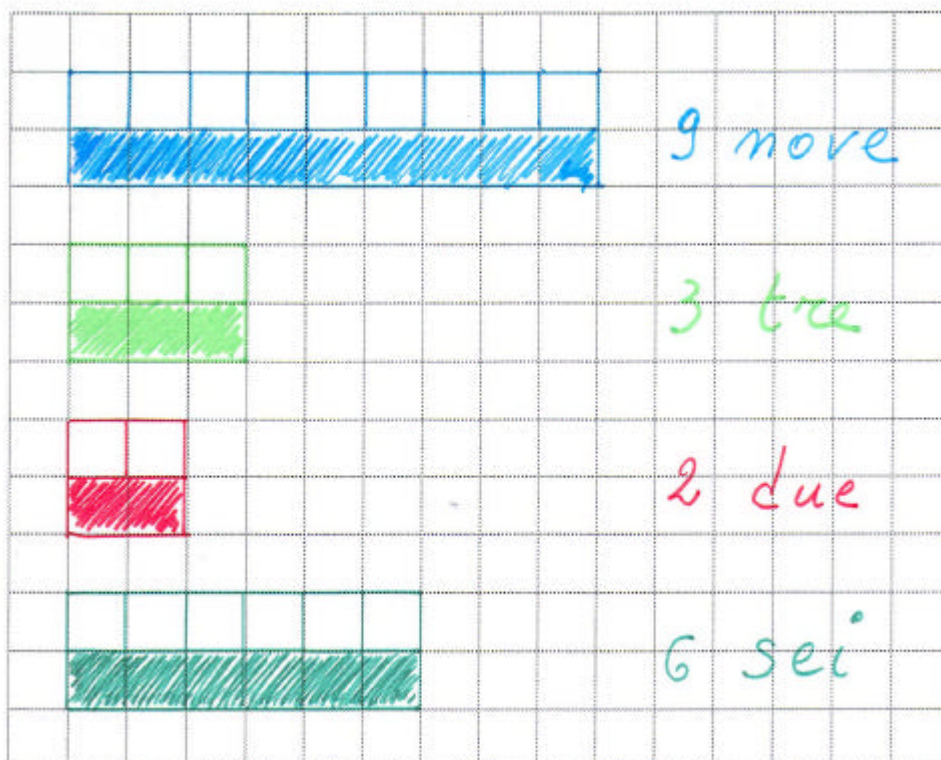 9 nove
3 tre
2 due
6 sei